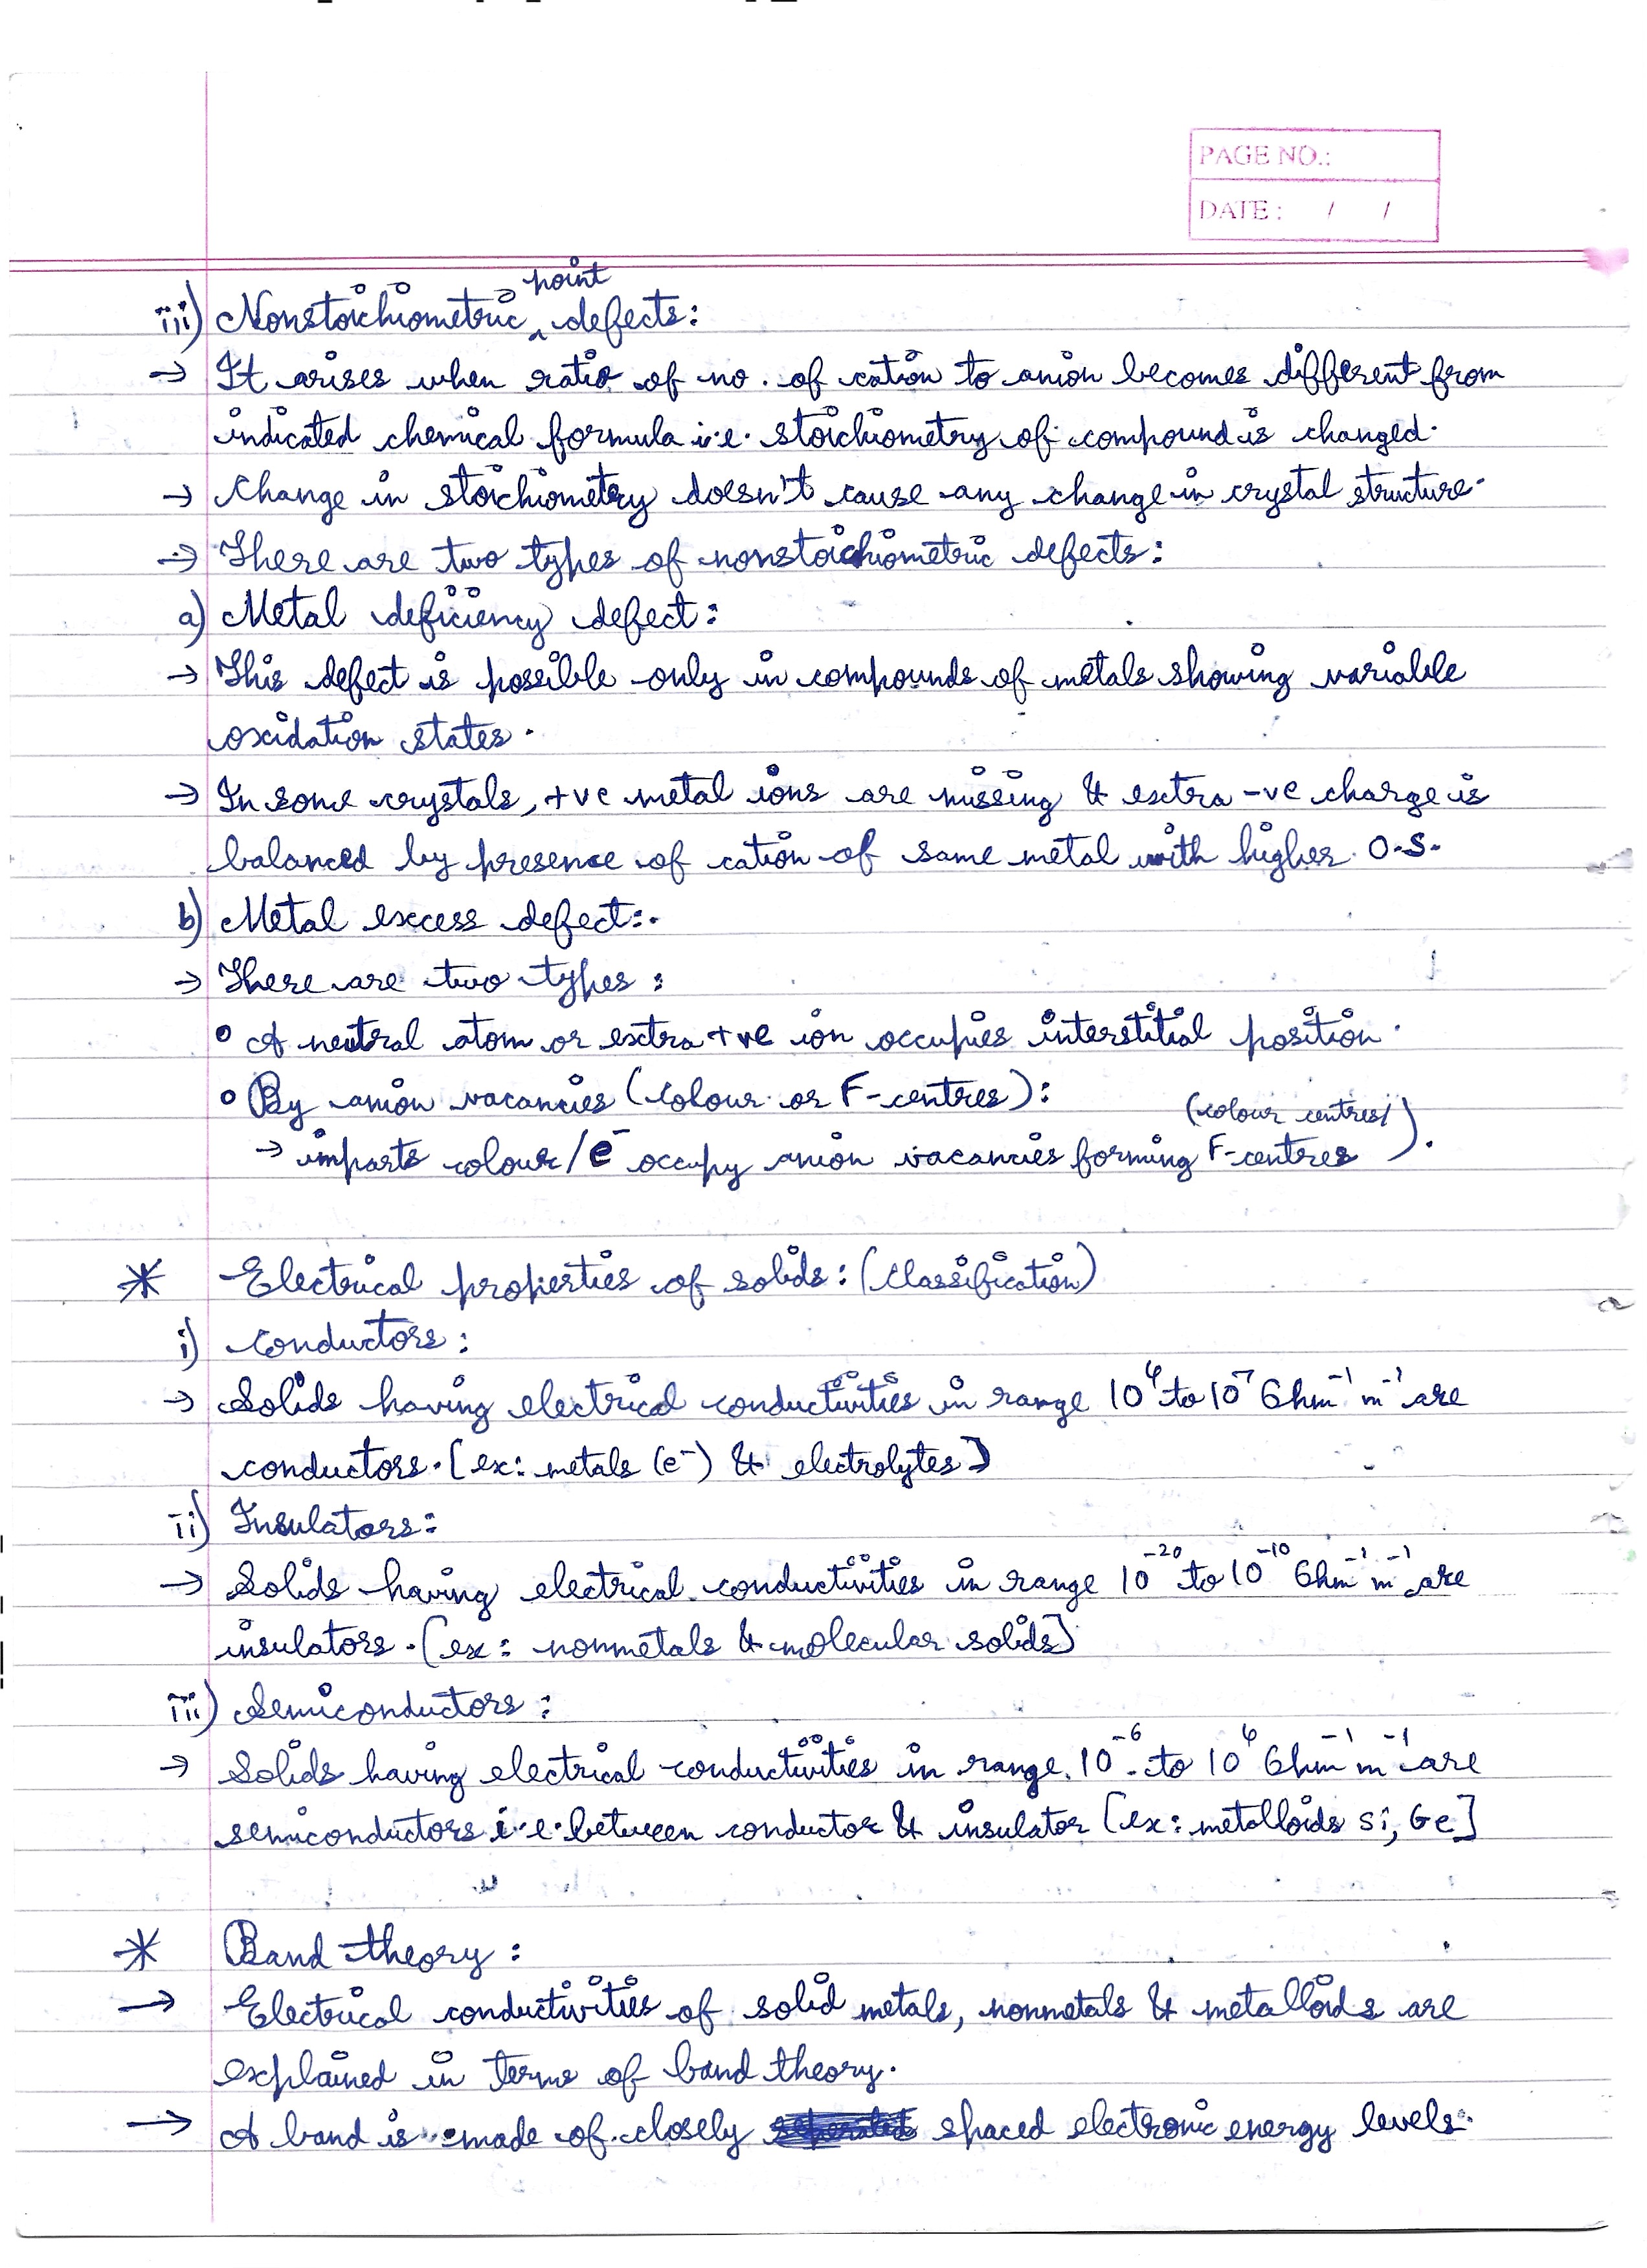 PAGE NO.:
DATE : / /
point
iii) Nonstoichiometric ^ defects:
→ It arises when ratio of no. of cation to anion becomes different from
indicated chemical formula i.e. stoichiometry of compound is changed.
→ Change in stoichiometry doesn't cause any change in crystal structure.
→ There are two types of nonstoichiometric defects:
a) Metal deficiency defect:
→ This defect is possible only in compounds of metals showing variable
oxidation states.
→ In some crystals, +ve metal ions are missing & extra -ve charge is
balanced by presence of cation of same metal with higher O.S.
b) Metal excess defect:
→ There are two types:
• A neutral atom or extra +ve ion occupies interstitial position.
• By anion vacancies (colour or F-centres):
(colour centres/
→ imparts colour/e⁻ occupy anion vacancies forming F-centres).
* Electrical properties of solids: (Classification)
i) Conductors:
→ Solids having electrical conductivities in range 10⁴ to 10⁷ Ohm⁻¹ m⁻¹ are
conductors. [ex: metals (e⁻) & electrolytes]
ii) Insulators:
→ Solids having electrical conductivities in range 10⁻²⁰ to 10⁻¹⁰ Ohm⁻¹ m⁻¹ are
insulators. [ex: nonmetals & molecular solids]
iii) Semiconductors:
→ Solids having electrical conductivities in range 10⁻⁶ to 10⁴ Ohm⁻¹ m⁻¹ are
semiconductors i.e. between conductor & insulator [ex: metalloids Si, Ge]
* Band theory:
→ Electrical conductivities of solid metals, nonmetals & metalloids are
explained in terms of band theory.
→ A band is made of closely spaced electronic energy levels.